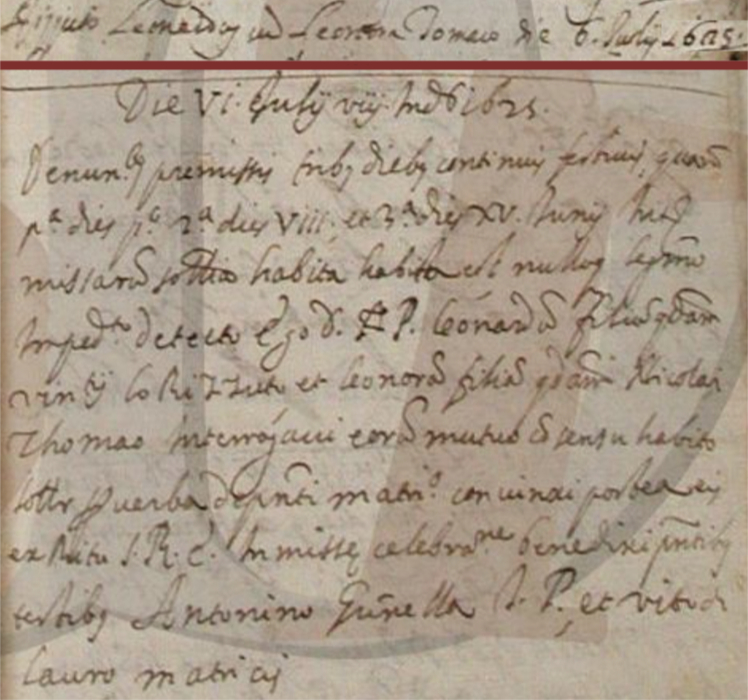 Leonardus cu Leonora Tomaso die 6. July 1625.
Die VI. July viij. Ind. 1625.
Denun. premissis trib. dieb. continuis festivis, quarũ
p.a dies p.o 2.a dies VIII. et 3.a dies XV. Junij
missarũ sollẽia habita habita est nulloq. legmo
Imped.to detecto Ego D. P. Leonardũ filiũ qdam
vin. lo Rizzuto et Leonorã filiã qdam Nicolai
Thomao Interrogavi eorũ mutuo cõsensu habito
sollr p verba de pñti matri.o coniunxi postea eis
ex Ritu S. R. E. In missę celebra.ne benedixi pñtib.
testib. Antonino Gũnella S. P. et vito di
lauro matricis